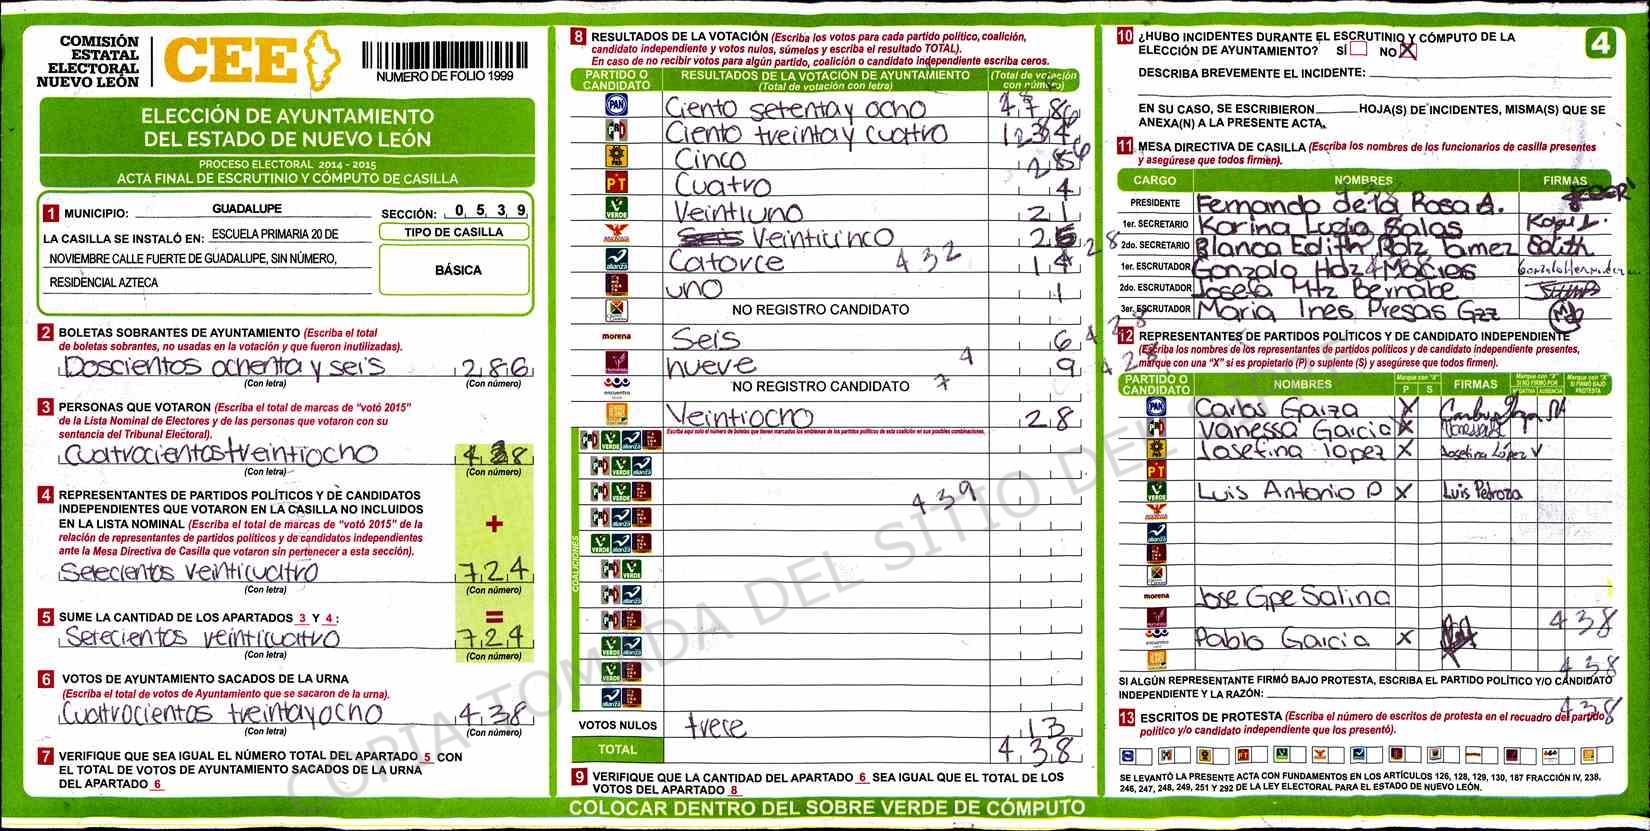 COMISIÓN
ESTATAL
ELECTORAL
NUEVO LEÓN
CEE
NUMERO DE FOLIO 1999
ELECCIÓN DE AYUNTAMIENTO
DEL ESTADO DE NUEVO LEÓN
PROCESO ELECTORAL 2014 - 2015
ACTA FINAL DE ESCRUTINIO Y CÓMPUTO DE CASILLA
1 MUNICIPIO: GUADALUPE SECCIÓN: 0 5 3 9
LA CASILLA SE INSTALÓ EN: ESCUELA PRIMARIA 20 DE
NOVIEMBRE CALLE FUERTE DE GUADALUPE, SIN NÚMERO,
RESIDENCIAL AZTECA
TIPO DE CASILLA
BÁSICA
2 BOLETAS SOBRANTES DE AYUNTAMIENTO (Escriba el total
de boletas sobrantes, no usadas en la votación y que fueron inutilizadas).
Doscientos ochenta y seis 286
(Con letra) (Con número)
3 PERSONAS QUE VOTARON (Escriba el total de marcas de "votó 2015"
de la Lista Nominal de Electores y de las personas que votaron con su
sentencia del Tribunal Electoral).
Cuatrocientos treintiocho 438
(Con letra) (Con número)
4 REPRESENTANTES DE PARTIDOS POLÍTICOS Y DE CANDIDATOS
INDEPENDIENTES QUE VOTARON EN LA CASILLA NO INCLUIDOS
EN LA LISTA NOMINAL (Escriba el total de marcas de "votó 2015" de la
relación de representantes de partidos políticos y de candidatos independientes
ante la Mesa Directiva de Casilla que votaron sin pertenecer a esta sección).
+
Setecientos veinticuatro 724
(Con letra) (Con número)
5 SUME LA CANTIDAD DE LOS APARTADOS 3 Y 4 : =
Setecientos veinticuatro 724
(Con letra) (Con número)
6 VOTOS DE AYUNTAMIENTO SACADOS DE LA URNA
(Escriba el total de votos de Ayuntamiento que se sacaron de la urna).
Cuatrocientos treintayocho 438
(Con letra) (Con número)
7 VERIFIQUE QUE SEA IGUAL EL NÚMERO TOTAL DEL APARTADO 5 CON
EL TOTAL DE VOTOS DE AYUNTAMIENTO SACADOS DE LA URNA
DEL APARTADO 6
8 RESULTADOS DE LA VOTACIÓN (Escriba los votos para cada partido político, coalición,
candidato independiente y votos nulos, súmelos y escriba el resultado TOTAL).
En caso de no recibir votos para algún partido, coalición o candidato independiente escriba ceros.
PARTIDO O CANDIDATO RESULTADOS DE LA VOTACIÓN DE AYUNTAMIENTO (Total de votación con letra) (Total de votación con número)
PAN Ciento setenta y ocho 178
PRI Ciento treinta y cuatro 134
PRD Cinco 5
PT Cuatro 4
VERDE Veintiuno 21
Veinticinco 25
alianza Catorce 432 14
uno 1
NO REGISTRO CANDIDATO
morena Seis 6
Humanista nueve 9
encuentro NO REGISTRO CANDIDATO
Veintiocho 28
Escriba aquí solo el número de boletas que tienen marcados los emblemas de los partidos políticos de esta coalición en sus posibles combinaciones.
COALICIONES
439
VOTOS NULOS trece 13
TOTAL 438
9 VERIFIQUE QUE LA CANTIDAD DEL APARTADO 6 SEA IGUAL QUE EL TOTAL DE LOS
VOTOS DEL APARTADO 8
COLOCAR DENTRO DEL SOBRE VERDE DE CÓMPUTO
4
10 ¿HUBO INCIDENTES DURANTE EL ESCRUTINIO Y CÓMPUTO DE LA
ELECCIÓN DE AYUNTAMIENTO? SÍ NO X
DESCRIBA BREVEMENTE EL INCIDENTE:
EN SU CASO, SE ESCRIBIERON HOJA(S) DE INCIDENTES, MISMA(S) QUE SE
ANEXA(N) A LA PRESENTE ACTA.
11 MESA DIRECTIVA DE CASILLA (Escriba los nombres de los funcionarios de casilla presentes
y asegúrese que todos firmen).
CARGO NOMBRES FIRMAS
PRESIDENTE Fernando de la Rosa A.
1er. SECRETARIO Karina Lucia Salas
2do. SECRETARIO Blanca Edith Rdz Tamez Edith
1er. ESCRUTADOR Gonzalo Hdz Macies
2do. ESCRUTADOR Josefa Mtz Bernabe
3er. ESCRUTADOR Maria Ines Presas Gzz
12 REPRESENTANTES DE PARTIDOS POLÍTICOS Y DE CANDIDATO INDEPENDIENTE
(Escriba los nombres de los representantes de partidos políticos y de candidato independiente presentes,
marque con una "X" si es propietario (P) o suplente (S) y asegúrese que todos firmen).
PARTIDO O CANDIDATO NOMBRES Marque con "X" P S FIRMAS Marque con "X" SI NO FIRMÓ POR NEGATIVA AUSENCIA Marque con "X" SI FIRMÓ BAJO PROTESTA
PAN Carlos Garza X
PRI Vanessa Garcia X
PRD Josefina lopez X Josefina López V
PT
VERDE Luis Antonio P X Luis Pedroza
morena Jose Gpe Salina
438
encuentro Pablo Garcia X
438
SI ALGÚN REPRESENTANTE FIRMÓ BAJO PROTESTA, ESCRIBA EL PARTIDO POLÍTICO Y/O CANDIDATO
INDEPENDIENTE Y LA RAZÓN:
438
13 ESCRITOS DE PROTESTA (Escriba el número de escritos de protesta en el recuadro del partido
político y/o candidato independiente que los presentó).
SE LEVANTÓ LA PRESENTE ACTA CON FUNDAMENTOS EN LOS ARTÍCULOS 126, 128, 129, 130, 187 FRACCIÓN IV, 238,
246, 247, 248, 249, 251 Y 292 DE LA LEY ELECTORAL PARA EL ESTADO DE NUEVO LEÓN.